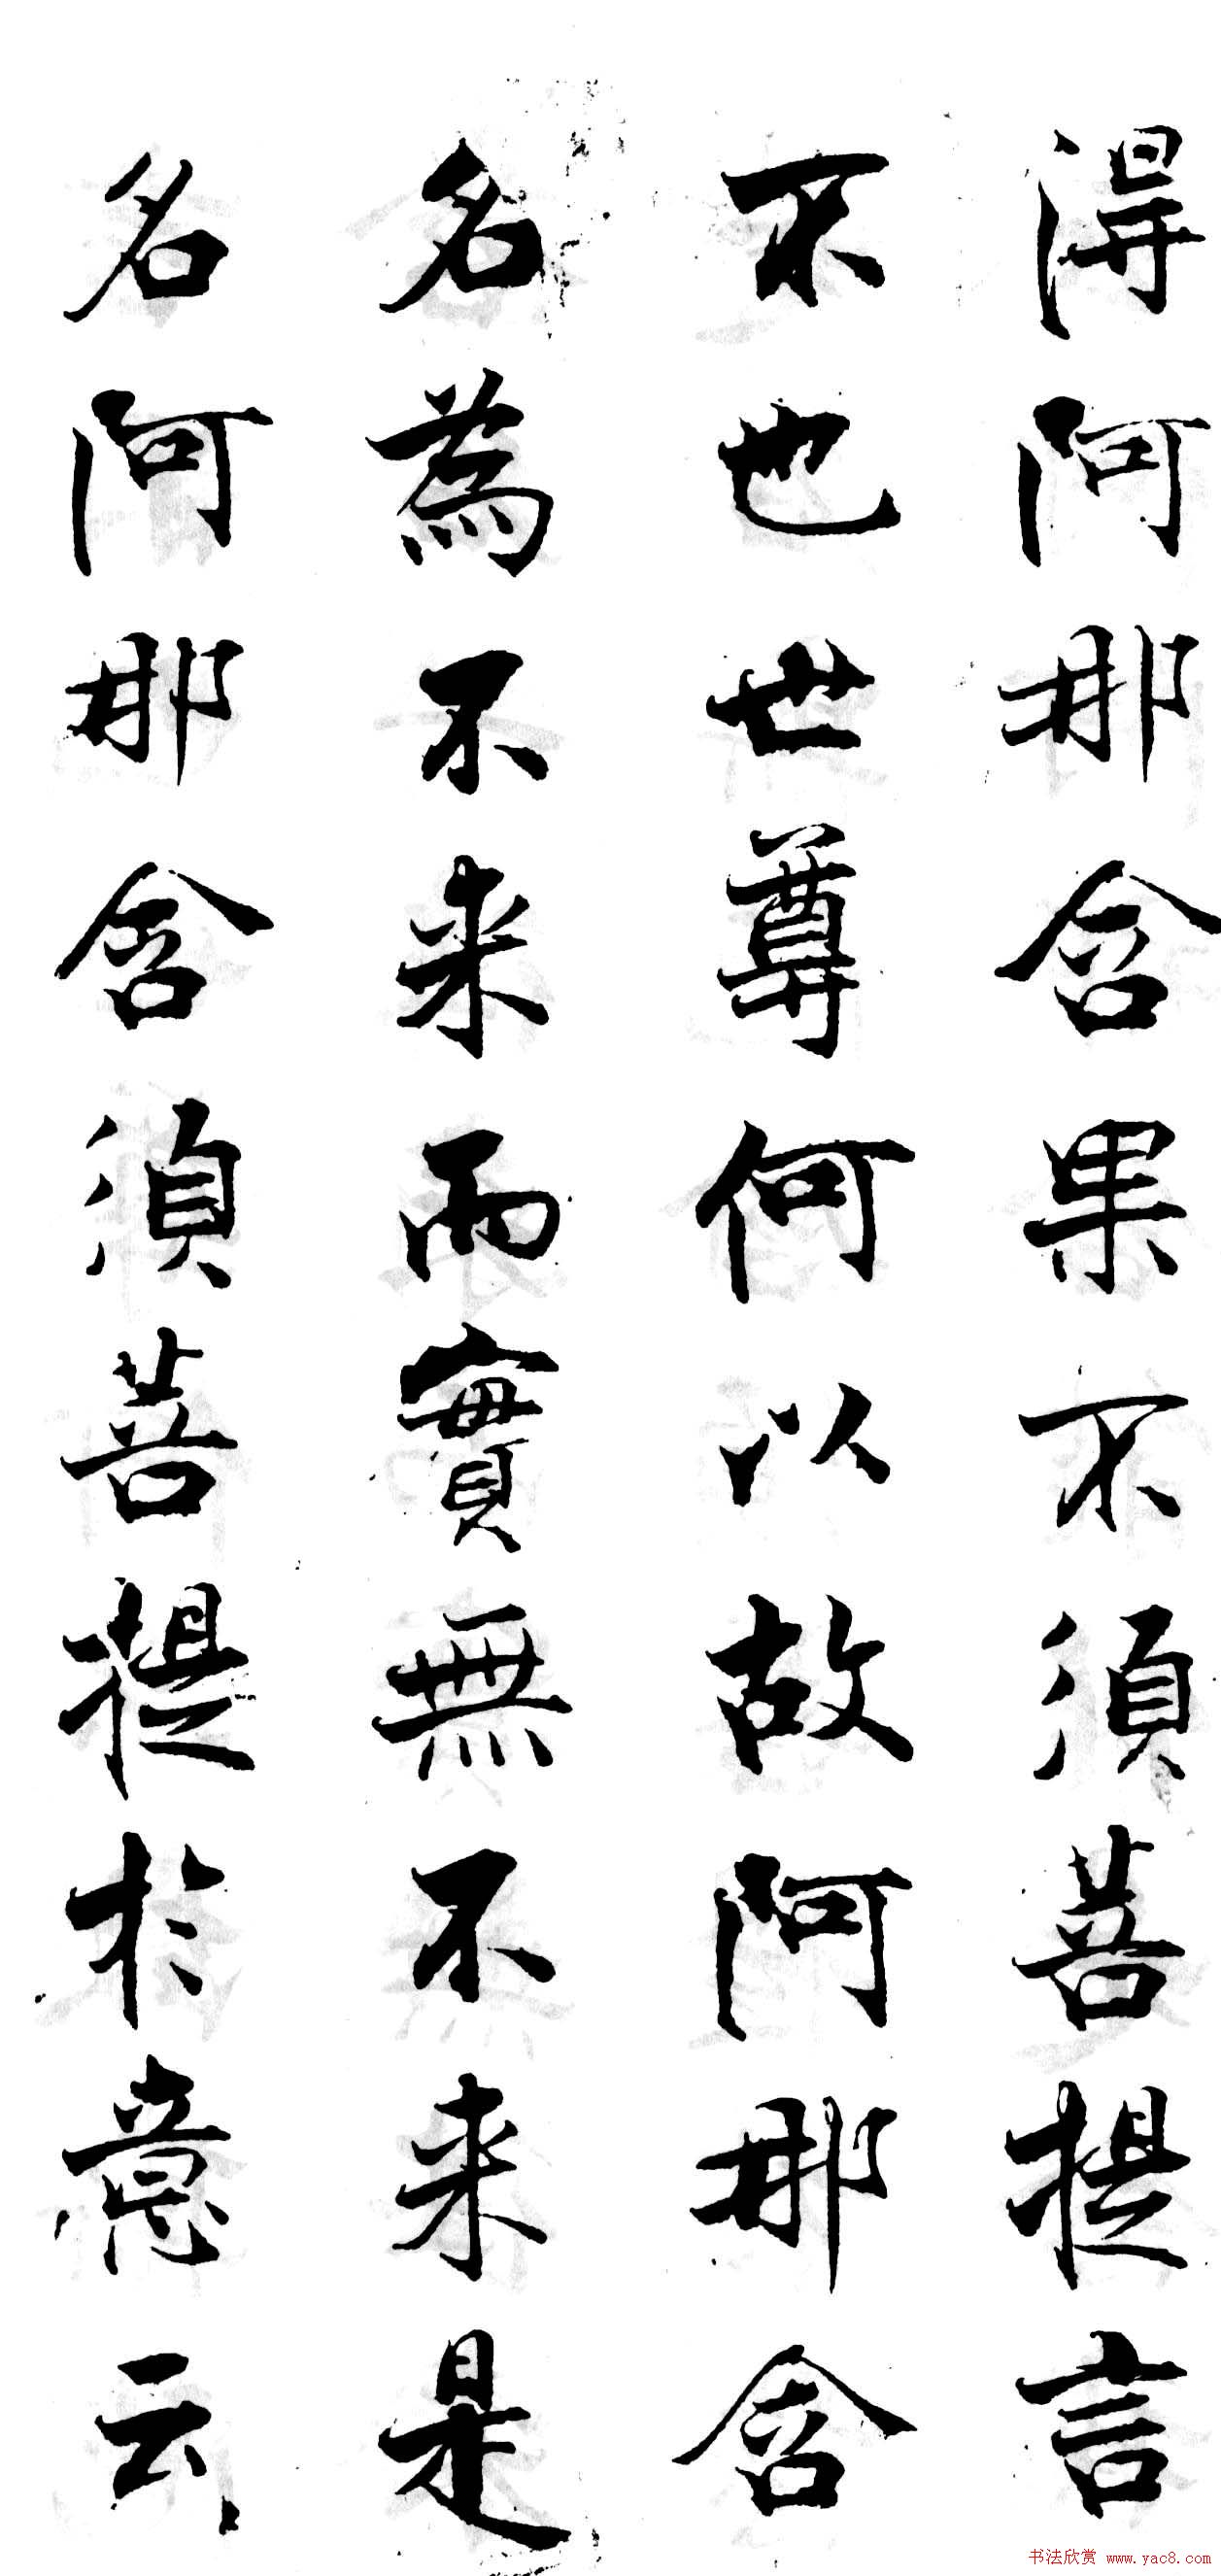 得阿那含果不須菩提言
不也世尊何以故阿那含
名為不来而實無不来是
名阿那含須菩提於意云
书法欣赏 www.yac8.com